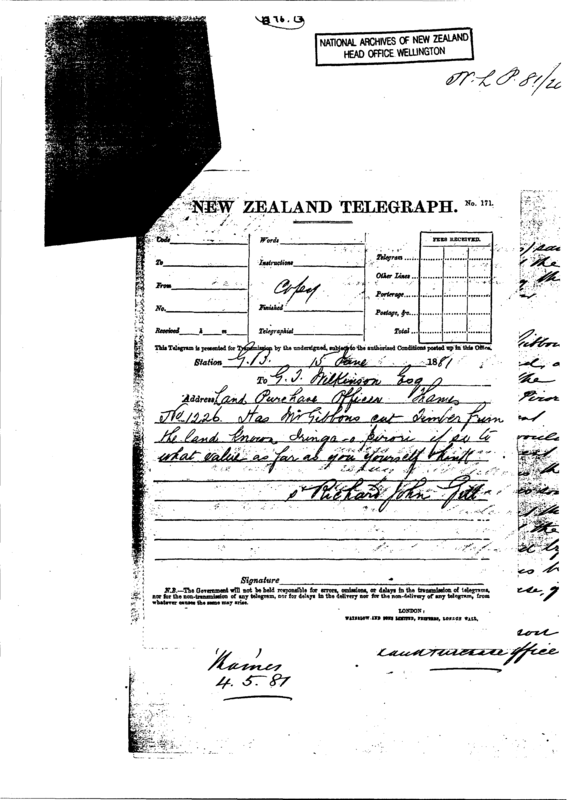 NATIONAL ARCHIVES OF NEW ZEALAND
HEAD OFFICE WELLINGTON
N.L.P. 81/26
NEW ZEALAND TELEGRAPH. No. 171.
Code
Words
FEES RECEIVED.
To
Instructions
Telegram
From
Copy
Other Lines
Porterage
No.
Finished
Postage, &c.
Received h m
Telegraphist
Total
This Telegram is presented for Transmission by the undersigned, subject to the authorised Conditions posted up in this Office.
Station G.B. 15 June 1881
To G. T. Wilkinson Esq
Address Land Purchase Officer Thames
No 1226. Has Mr Gibbons cut timber from
the land known Iringa-o-pirori if so to
what value as far as you yourself think
Richard John Gill
Signature
N.B.—The Government will not be held responsible for errors, omissions, or delays in the transmission of telegrams,
nor for the non-transmission of any telegram, nor for delays in the delivery nor for the non-delivery of any telegram, from
whatever causes the same may arise.
LONDON:
WATERLOW AND SONS LIMITED, PRINTERS, LONDON WALL.
Land Purchase Office
Thames
4. 5. 87